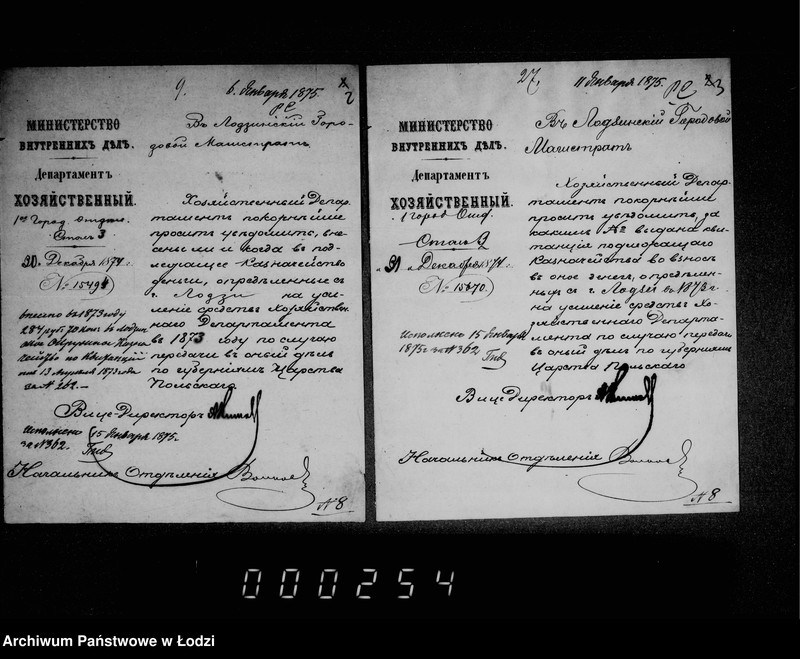 9.
6. Января 1875.
2
МИНИСТЕРСТВО
ВНУТРЕННИХЪ ДѢЛЪ.
Департаментъ
ХОЗЯЙСТВЕННЫЙ.
Столъ 3
30. Декабря 1874 г.
№ 15494
Въ Лодзинскій Горо-
довой Магистратъ
Хозяйственный Депар-
таментъ покорнѣйше
проситъ увѣдомить, вне-
сены ли и когда въ под-
лежащее Казначейство
деньги, опредѣленные съ
г. Лодзи на уси-
леніе средствъ Хозяйствен-
наго Департамента
въ 1873 году по случаю
передачи въ оный дѣлъ
по губерніямъ Царства
Польскаго.
внесено въ 1873 году
284 руб. 70 коп. въ
по Квитанціи
13 Апрѣля 1873 года
за № 262.—
Вице-Директоръ
Исполнено
15 Января 1875.
за № 362.
Начальникъ Отдѣленія
№ 8
27.
11 Января 1875.
3
МИНИСТЕРСТВО
ВНУТРЕННИХЪ ДѢЛЪ.
Департаментъ
ХОЗЯЙСТВЕННЫЙ.
1 Город. Отд.
Столъ 3
31. Декабря 1874 г.
№ 15670.
Въ Лодзинскій Городовой
Магистратъ
Хозяйственный Депар-
таментъ покорнѣйше
проситъ увѣдомить, за
какимъ № выдана кви-
танція подлежащаго
Казначейства во взносѣ
въ оное денегъ, опредѣлен-
ныхъ съ г. Лодзи въ 1873 г.
на усиленіе средствъ Хо-
зяйственнаго Департа-
мента по случаю передачи
въ оный дѣлъ по губерніямъ
Царства Польскаго
Исполнено 15 Января
1875 г. за № 362
Вице Директоръ
Начальникъ Отдѣленія
№ 8
000254
Archiwum Państwowe w Łodzi